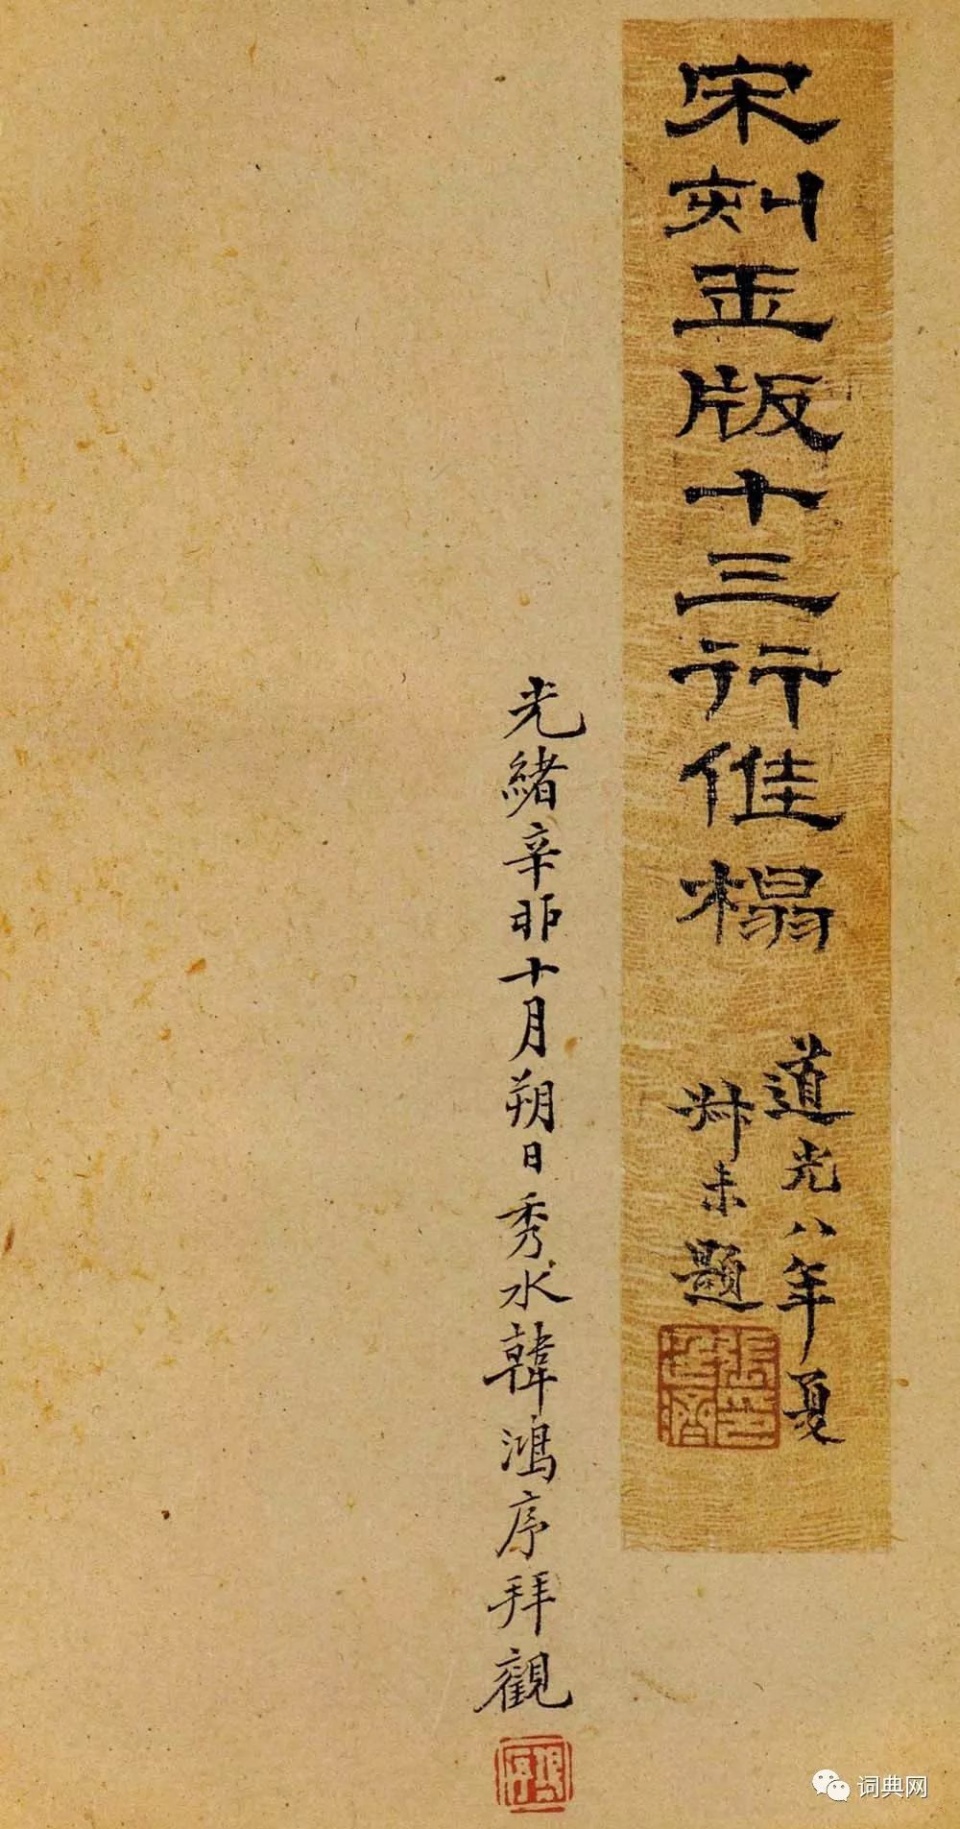 宋刻玉版十三行佳榻
道光八年夏
叔未題
張廷濟印
光緒辛卯十月朔日秀水韓鴻序拜觀
鴻序
词典网